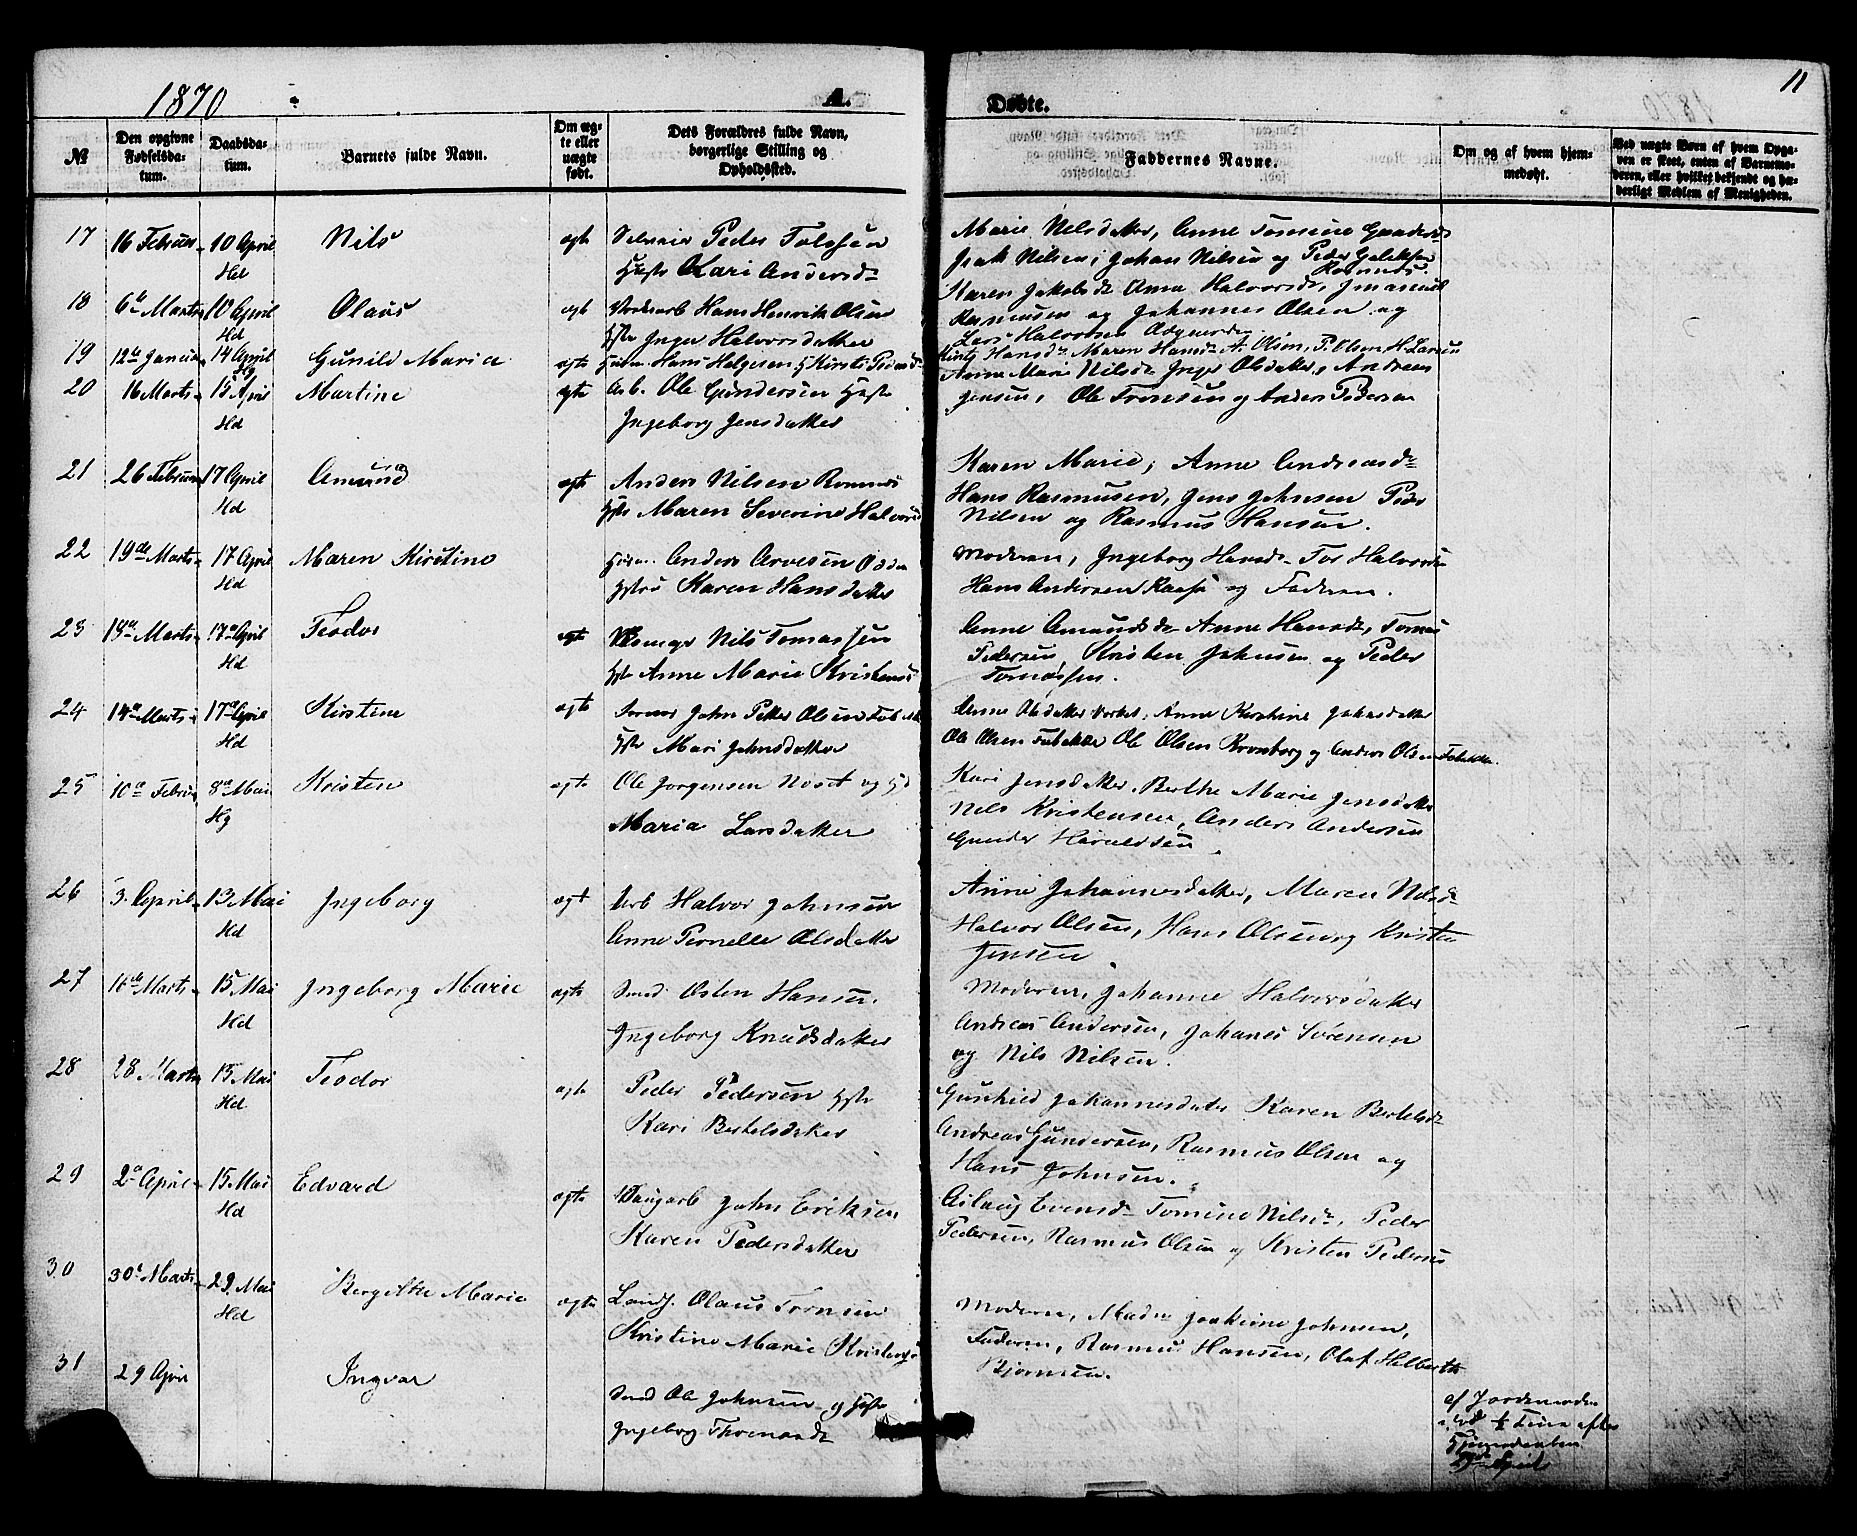 1870
A.
Døbte.
11
№
Den opgivne Fødselsda-tum.
Daabsda-tum.
Barnets fulde Navn.
Om æg-te eller uægte født.
Dets Forældres fulde Navn, borgerlige Stilling og Opholdssted.
Faddernes Navne.
Om og af hvem hjem-medøbt.
Ved uægte Børn af hvem Opga-ven er skeet, enten af Barnemo-deren, eller hvilket bekjendt og hæ-derligt Medlem af Menigheden.
17 16 Februar 10 April Nils ægte Peder Tolefsen
Hd Hustr Kari Andersd
Marie Nilsdatter, Anne Tomine
Isak Nilsen, Johan Nilsen og Peder
18 6te Marts 10 April Olaus ægt Hans Henrik Olsen
Hd Hstr Inger Halvorsdatter
Karen Jakobsd Anna Halvorsd, Imanuel
Rasmusen og Johannes Olsen og
Lars Halvorsen
19 12te Januar 14 April Gunild Maria ægte Hans Helgesen, Kirsti Pedersd
Hg
Hansd Maren Hansd A. Olsen, P. Olsen, H. Larsen
20 16 Marts 15 April Martine ægte Arb. Ole Gundersen Hustr
Hd Ingeborg Jensdatter
Anne Marie Nilsd Inger Olsdatter, Andreas
Jensen, Ole Tomsen og Anders Pedersen
21 26 Februar 17 April Amund ægte Anders Nilsen Romnes
Hd Hstr Maren Severine Halvorsd
Karen Marie, Anne Andreasd
Hans Rasmusen, Jens Johnsen Peder
Nilsen og Rasmus Hansen.
22 19de Marts 17 April Maren Kirstine Anders Arvesen
Hd Hstru Karen Hansdatter
Moderen, Ingeborg Hansd Tor Halvorsen
Hans Andersen og Faderen.
23 17de April Teodor ægte Nils Tomassen
Hd Hstr Anne Marie Kristensd
Anne Amundsd Anne Hansd, Tomas
Pedersen, Kristen Johnsen og Peder
Tomassen.
24 14de Marts 17de April Kirstine ægte John Petter Olsen
Hd Hstr Mari Johnsdatter
Anne Olsdatter, Anne Kirstine Johnsdatter
Ole Olsen Ole Olsen Kronborg og Anders Olsen
25 10de Februar 8de Mai Kristen ægte Ole Jørgensen og
Hg Maria Larsdatter
Kari Jensdatter, Berthe Marie Jensdatter
Nils Kristensen, Anders Andersen
Gunder Haraldsen
26 3. April 13 Mai Ingeborg ægt Arb Halvor Johnsen
Hd Anne Pernelle Olsdatter
Anne Johannesdatter, Maren Nilsd
Halvor Olsen, Hans Olsen og Kristen
Jensen
27 16de Marts 15 Mai Ingeborg Marie ægte Smed Østen Hansen.
Hd Ingeborg Knudsdatter
Moderen, Johanne Halvorsdatter
Andreas Andersen, Johanes Sørensen
og Nils Nilsen.
28 28 Marts 15 Mai Teodor ægte Peder Pedersen Hstr
Hd Kari Bertelsdatter
Gunhild Johannesdatter Karen Bertelsd
Andreas Gundersen, Rasmus Olsen og
Hans Johnsen.
29 2den April 15 Mai Edvard ægte John Eriksen
Hd Karen Pedersdatter
Aslaug Evensd Tomine Nilsd, Peder
Pedersen, Rasmus Olsen og Kristen Pedersen
30 30te Marts 29. Mai Bergitthe Marie ægte Landh. Olaus Tomsen
Hd Kristine Marie
Moderen, Joakime Johnsen,
Faderen, Rasmus Hansen, Olaf Helberth
Bjørnsen.
31 29 April Ingvar Smed Ole Johnsen og Hustr
Ingeborg
af Jordemoderen
Time efter
April